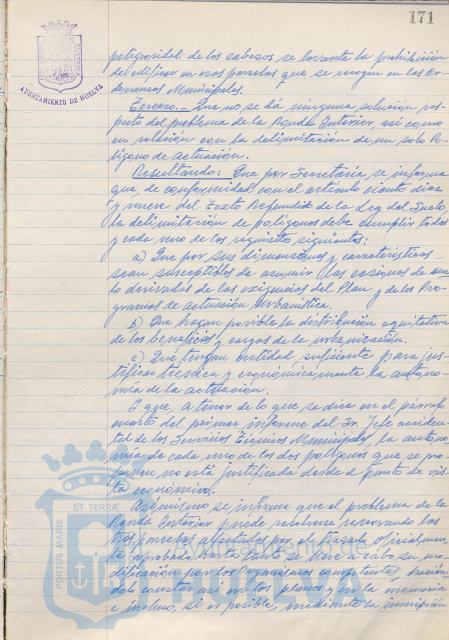 171
AYUNTAMIENTO DE HUELVA
peligrosidad de los cabezos se levante la prohibición
de edificar en esas parcelas que se recogen en las Or-
denanzas Municipales.
Tercero.- Que no se dá ninguna solución res-
pecto del problema de la Ronda Interior, así como
en relación con la delimitación de un solo Po-
lígono de actuación.
Resultando: Que por Secretaría se informa
que de conformidad con el artículo ciento diez
y nueve del Texto Refundido de la Ley del Suelo,
la delimitación de polígonos debe cumplir todos
y cada uno de los requisitos siguientes:
a) Que por sus dimensiones y características
sean susceptibles de asumir las cesiones de sue-
lo derivadas de las exigencias del Plan y de los Pro-
gramas de actuación Urbanística.
b) Que hagan posible la distribución equitativa
de los beneficios y cargas de la urbanización.
c) Que tengan entidad suficiente para jus-
tificar técnica y económicamente la autono-
mía de la actuación.
Y que, a tenor de lo que se dice en el párrafo
cuarto del primer informe del Sr. Jefe acciden-
tal de los Servicios Técnicos Municipales, la autono-
mía de cada uno de los dos polígonos que se pro-
ponen no está justificada desde el punto de vis-
ta económico.
Asimismo se informa que el problema de la
Ronda Interior puede resolverse reservando las
tres parcelas afectadas por el trazado oficialmen-
te aprobado hasta tanto se lleve a cabo su mo-
dificación por los Organismos competentes, hacién-
dolo constar así en los planos y en la memoria
e incluso, si es posible, mediante la inscripción
PORTUS MARIS ET TERRAE
HUELVA